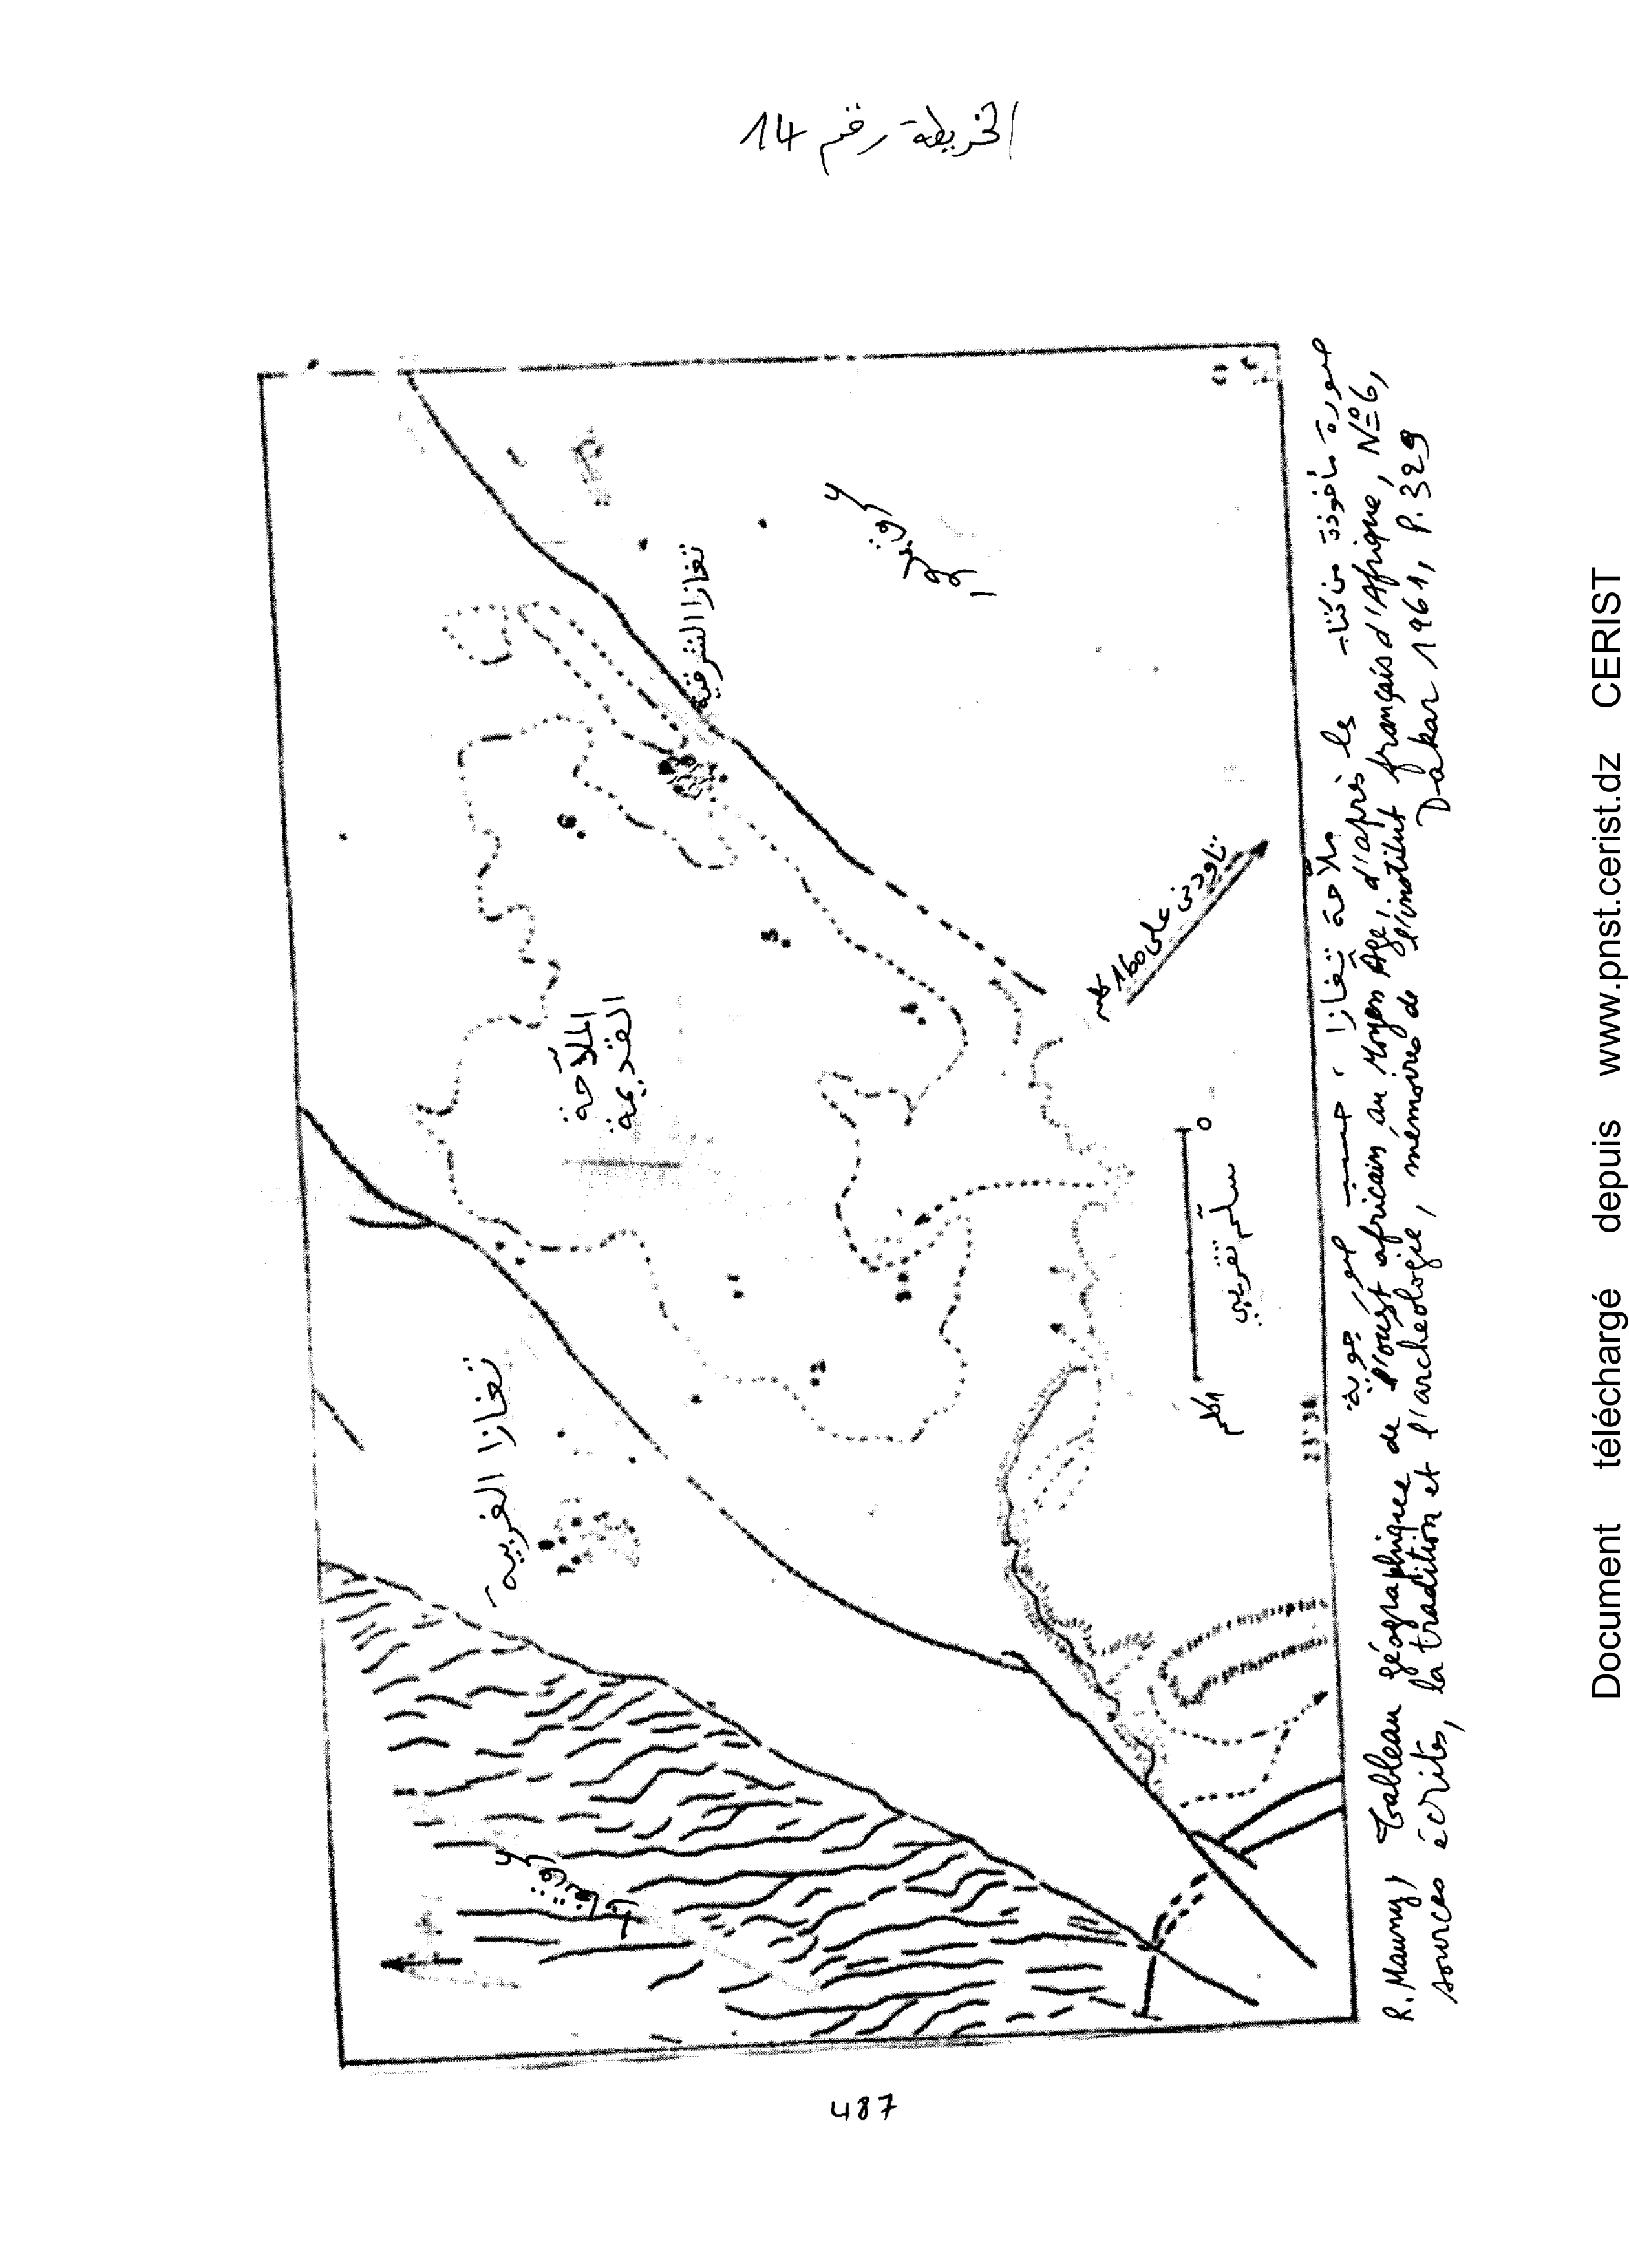 الخريطة رقم 14
تغازا الشرقية
الملاحة
القديمة
تغازا الغربية
تاودني على 160 كلم
0
1 كلم
سلم تقريبي
1
2
3
4
5
6
ملاحة تغازا، حسب صورة جوية
صورة مأخوذة من كتاب
R. Mauny, Tableau géographique de l'ouest africain au Moyen Age, d'après les
sources écrites, la tradition et l'archéologie, mémoires de l'institut français d'Afrique, N° 6,
Dakar 1961, P. 329
487
Document téléchargé depuis www.pnst.cerist.dz CERIST